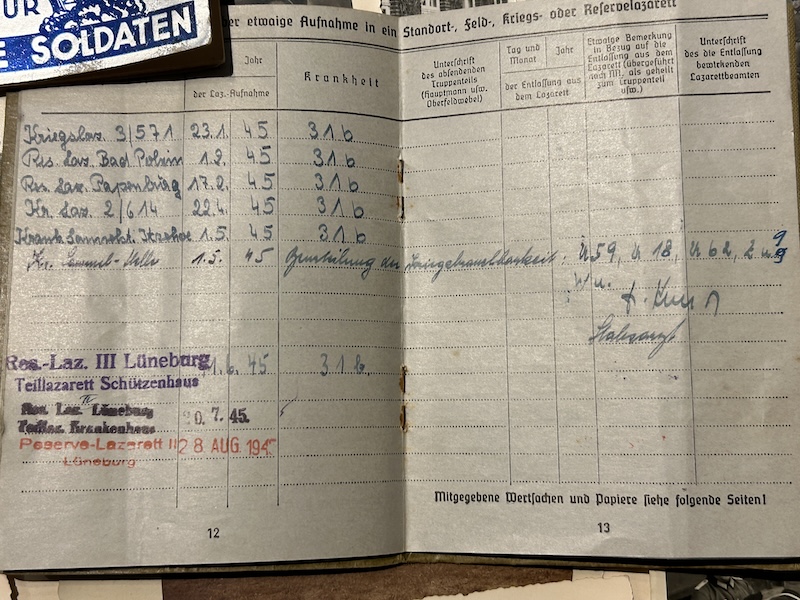 UR
E SOLDATEN
er etwaige Aufnahme in ein Standort-, Feld-, Kriegs- oder Reservelazarett
Jahr
der Laz.-Aufnahme
Krankheit
Unterschrift
des absendenden
Truppenteils
(Hauptmann usw.
Oberfeldwebel)
Tag und
Monat
Jahr
der Entlassung aus
dem Lazarett
Etwaige Bemerkung
in Bezug auf die
Entlassung aus dem
Lazarett (übergeführt
nach NN, als geheilt
zum Truppenteil
usw.)
Unterschrift
des die Entlassung
bewirkenden
Lazarettbeamten
Kriegslaz. 3/571 23.1. 45 31b
Res. Laz. Bad 1.2. 45 31b
Res. Laz. Papenburg 17.2. 45 31b
Kr. Laz. 2/614 22.4. 45 31b
1.5. 45 31b
Kr. Sammel-Stelle 1.5. 45 Beurteilung der Kriegsbrauchbarkeit: U 59, U 18, U 62, Z u. 9
Stabsarzt
Res.-Laz. III Lüneburg 1.6. 45 31b.
Teillazarett Schützenhaus
Res. Laz. IV Lüneburg
Teillaz. Krankenhaus
20.7.45.
Reserve-Lazarett II 28 AUG. 194
Lüneburg
Mitgegebene Wertsachen und Papiere siehe folgende Seiten!
12
13